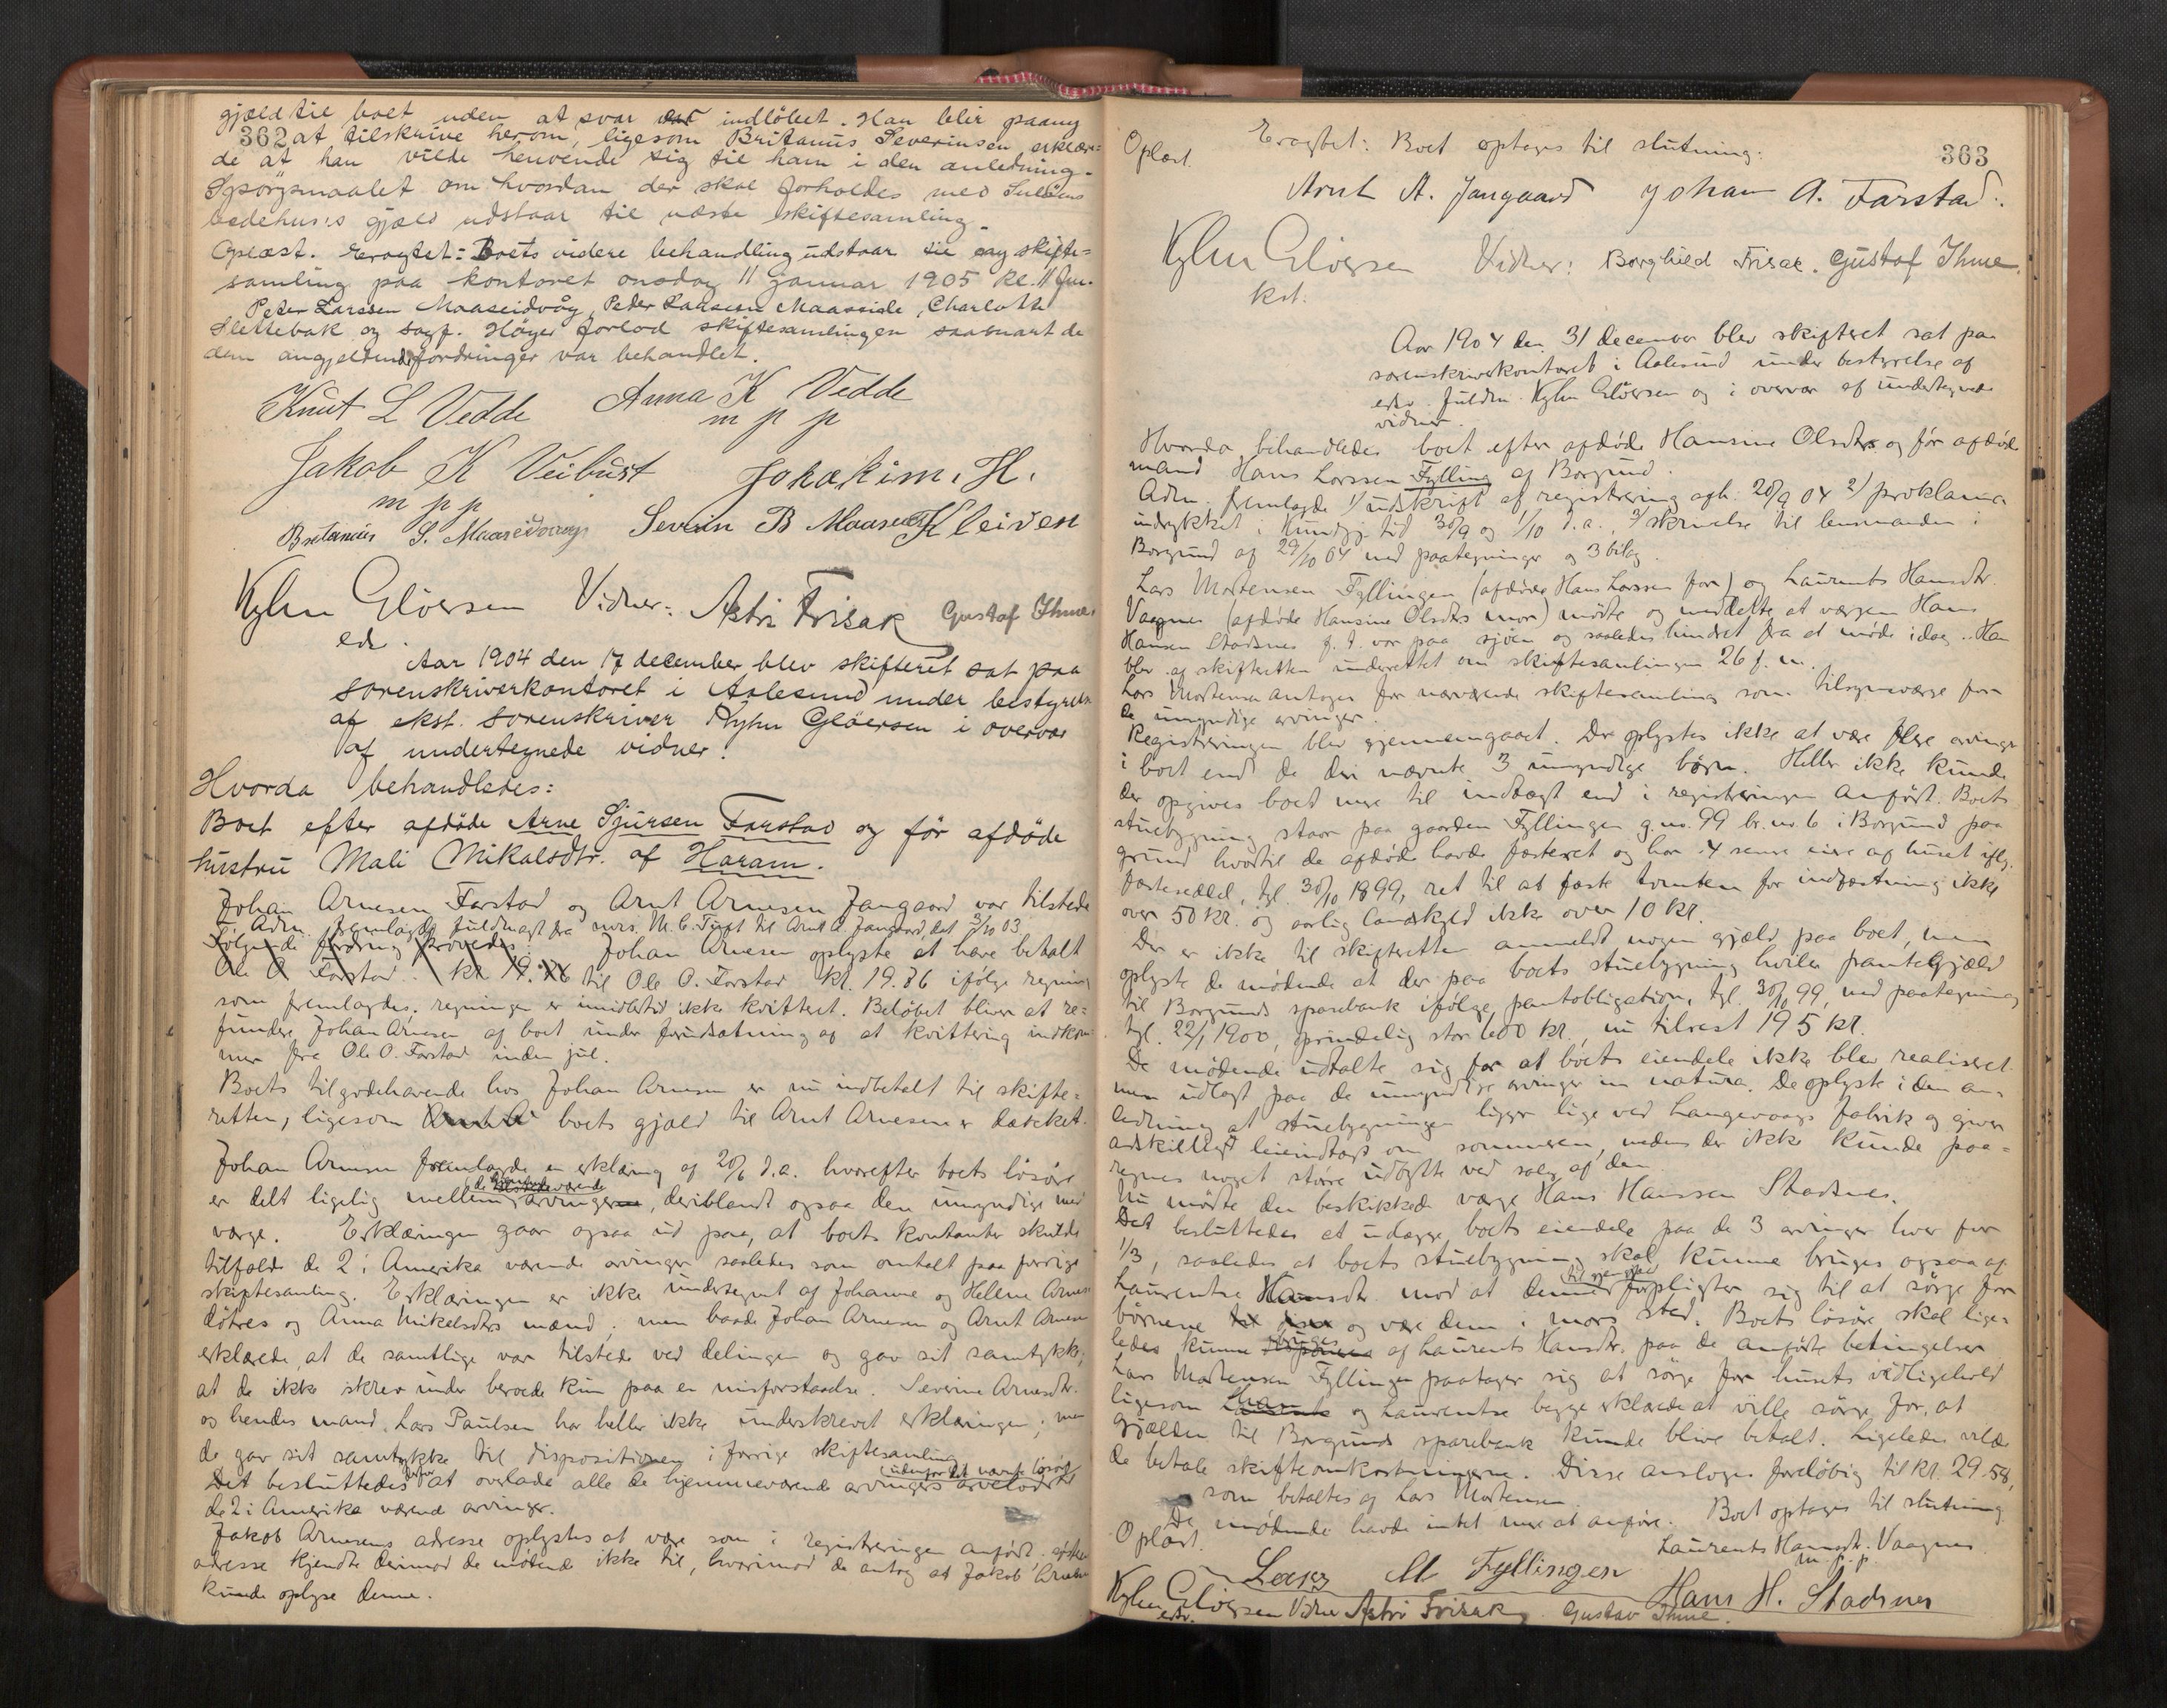 gjæld til boet uden at svar var indløbet. Han blir paany
362 at tilskrive herom, ligesom Britanius Severinsen erklære=
de at han vilde henvende sig til ham i den anledning.
Spørgsmaalet om hvordan der skal forholdes med Suløens
bedehus's gjæld udstaar til næste skiftesamling.
Oplæst. Eragtet: Boets videre behandling udstaar til ny skifte=
samling paa kontoret onsdag 11 januar 1905 kl. 11 fm.
Peter Larssen Maaseidvåg, Peder Larssen Maaseide, Charlotte
Slettebak og sagf. Høyer forlod skiftesamlingen saasnart de
dem angjeldende fordringer var behandlet.
Knut L Vedde Anna K Vedde
m p p
Jakob K Veibust Johakim. H.
m p p
Britanius S. Maaseidvaag Severin B Maaseid Kleiven
Kyhn Gløersen Vidner: Astri Frisak Gustaf Thme.
edr.
Aar 1904 den 17 december blev skifteret sat paa
sorenskriverkontoret i Aalesund under bestyrelse
af ekst. sorenskriver Kyhn Gløersen i overvær
af undertegnede vidner.
Hvorda behandledes:
Boet efter afdøde Arne Sjursen Farstad og før afdøde
hustru Mali Mikalsdtr. af Haram.
Johan Arnesen Farstad og Arnt Arnesen Jangaard var tilstede
Adm. fremlagde fuldmagt fra mrs. M. C. Tuft til Arnt A. Jangaard, dat 3/10 03
Følgende fordring prøvedes: Johan Arnesen oplyste at have betalt
Ole O Farstad kr 19.76 til Ole O. Farstad kr. 19.86 ifølge regning
som fremlagdes; regningen er imidlertid ikke kvitteret. Beløbet bliver at re=
fundere Johan Arnesen af boet under forudsætning af at kvittering indkom=
mer fra Ole O. Farstad inden jul.
Boets tilgodehavende hos Johan Arnesen er nu indbetalt til skifte=
retten, ligesom boets gjæld til Arnt Arnesen er dækket.
Johan Arnesen fremlagde en erklæring af 20/6 d.a. hvorefter boets løsøre
de hjemmeværende
er delt ligelig mellem arvinger, deriblandt ogsaa den umyndige med
værge. Erklæringen gaar ogsaa ud paa, at boets kontanter skulde
tilfalde de 2 i Amerika værende arvinger saaledes som omtalt paa forrige
skiftesamling. Erklæringen er ikke undertegnet af Johanne og Helene Arnes
døtres og Anna Mikelsdtrs mænd; men baade Johan Arnesen og Arnt Arnesen
erklærede, at de samtlige var tilstede ved delingen og gav sit samtykke;
at de ikke skrev under beroede kun paa en misforstaaelse. Severine Arnesdtr.
og hendes mand Lars Paulsen har heller ikke underskrevet erklæringen; men
de gav sit samtykke til dispositionen i forrige skiftesamling.
derfor (udenfor det nævnte løsøre)
Det besluttedes at overlade alle de hjemmeværende arvingers arvelodder til
de 2 i Amerika værende arvinger.
Jakob Arnesens adresse oplystes at være som i registreringen anført.
adresse kjendte derimod de mødende ikke til, hvorimod de antog at Jakob Arnesen
kunde oplyse denne.
363
Oplæst. Eragtet: Boet optages til slutning:
Arnt A. Jangaard Johan A. Farstad.
Kyhn Gløersen Vidner: Borghild Frisak. Gustaf Thme.
kst.
Aar 1904 den 31 december blev skifteret sat paa
sorenskriverkontoret i Aalesund under bestyrelse af
edsv. fuldm. Kyhn Gløersen og i overvær af undertegnede
vidner.
Hvorda behandledes boet efter afdøde Hansine Olsdtr. og før afdøde
mand Hans Larssen Fylling af Borgund.
Adm. fremlagde 1/ udskrift af registrering afh. 20/9 04 2/ proklama
indrykket i Kundgj. tid 30/9 og 1/10 d.a. 3/ skrivelse til lensmanden i
Borgund af 29/10 04 med paategninger og 3 bilag.
Lars Mortensen Fyllingen (afdøde Hans Larssen far) og Laurentse Hansdtr.
Vaagnes (afdøde Hansine Olsdtrs mor) mødte og meddelte at værgen Hans
Hansen Stadsnes p.t. var paa sjøen og saaledes hindret fra at møde idag. Han
blev af skifteretten underrettet om skiftesamlingen 26 f. m.
Lars Mortensen antoges for nærværende skiftesamling som tilsynsværge for
de umyndige arvinger.
Registreringen blev gjennemgaaet. Der oplystes ikke at være flere arvinger
i boet end de der nævnte 3 umyndige børn. Heller ikke kunde
der opgives boet mere til indtægt end i registreringen anført. Boets
stuebygning staar paa gaarden Fyllingen g.no. 99 br.no. 6 i Borgund paa
grund hvortil de afdøde havde fæsteret og har senere eiere af huset iflg.
fæsteseddel, tgl. 30/10 1899, ret til at fæste tomten for indfæstning ikke
over 50 kr. og aarlig landskyld ikke over 10 kr.
Der er ikke til skifteretten anmeldt nogen gjæld paa boet, men
oplyste de mødende at der paa boets stuebygning hviler pantegjæld
til Borgunds sparebank ifølge pantobligation, tgl. 30/10 99, med paategning
tgl. 22/1 1900, oprindelig stor 600 kr., nu tilrest 195 kr.
De mødende udtalte sig for at boets eiendele ikke blev realiseret
men udlagt paa de umyndige arvinger in natura. De oplyste i den an=
ledning at stuebygningen ligger lige ved Langevaags fabrik og giver
adskilligt leieindtægt om sommeren, medens der ikke kunde paa=
regnes noget større udbytte ved salg af den.
Nu mødte den beskikkede værge Hans Hanssen Stadsnes.
Det besluttedes at udlægge boets eiendele paa de 3 arvinger hver for
1/3, saaledes at boets stuebygning skal kunne bruges ogsaa af
til gjengjæld
Laurentse Hansdtr. mod at denne forpligter sig til at sørge for
børnene og være dem i mors sted. Boets løsøre skal lige=
bruges
ledes kunne af Laurents Hansdtr. paa de anførte betingelser
Lars Mortensen Fyllingen paatager sig at sørge for husets vedligehold
ligesom han og Laurentse begge erklærede at ville sørge for, at
gjælden til Borgunds sparebank kunde blive betalt. Ligeledes vilde
de betale skifteomkostningerne. Disse ansloges foreløbig til kr. 29.58,
som betaltes af Lars Mortensen.
De mødende havde intet mere at anføre. Boet optages til slutning
Oplæst. Laurents Hansdt. Vaagnes
m.p.p.
Lars M Fyllingen Hans H. Stadsnes
Kyhn Gløersen Vidner Astri Frisak. Gustav Thme.
edr.